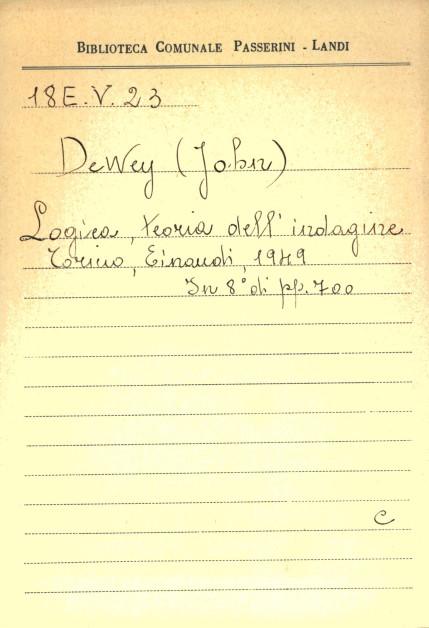 BIBLIOTECA COMUNALE PASSERINI - LANDI
18E.V.23
DeWey (John)
Logica, teoria dell'indagine
Torino, Einaudi, 1949
In 8° di pp. 700
C